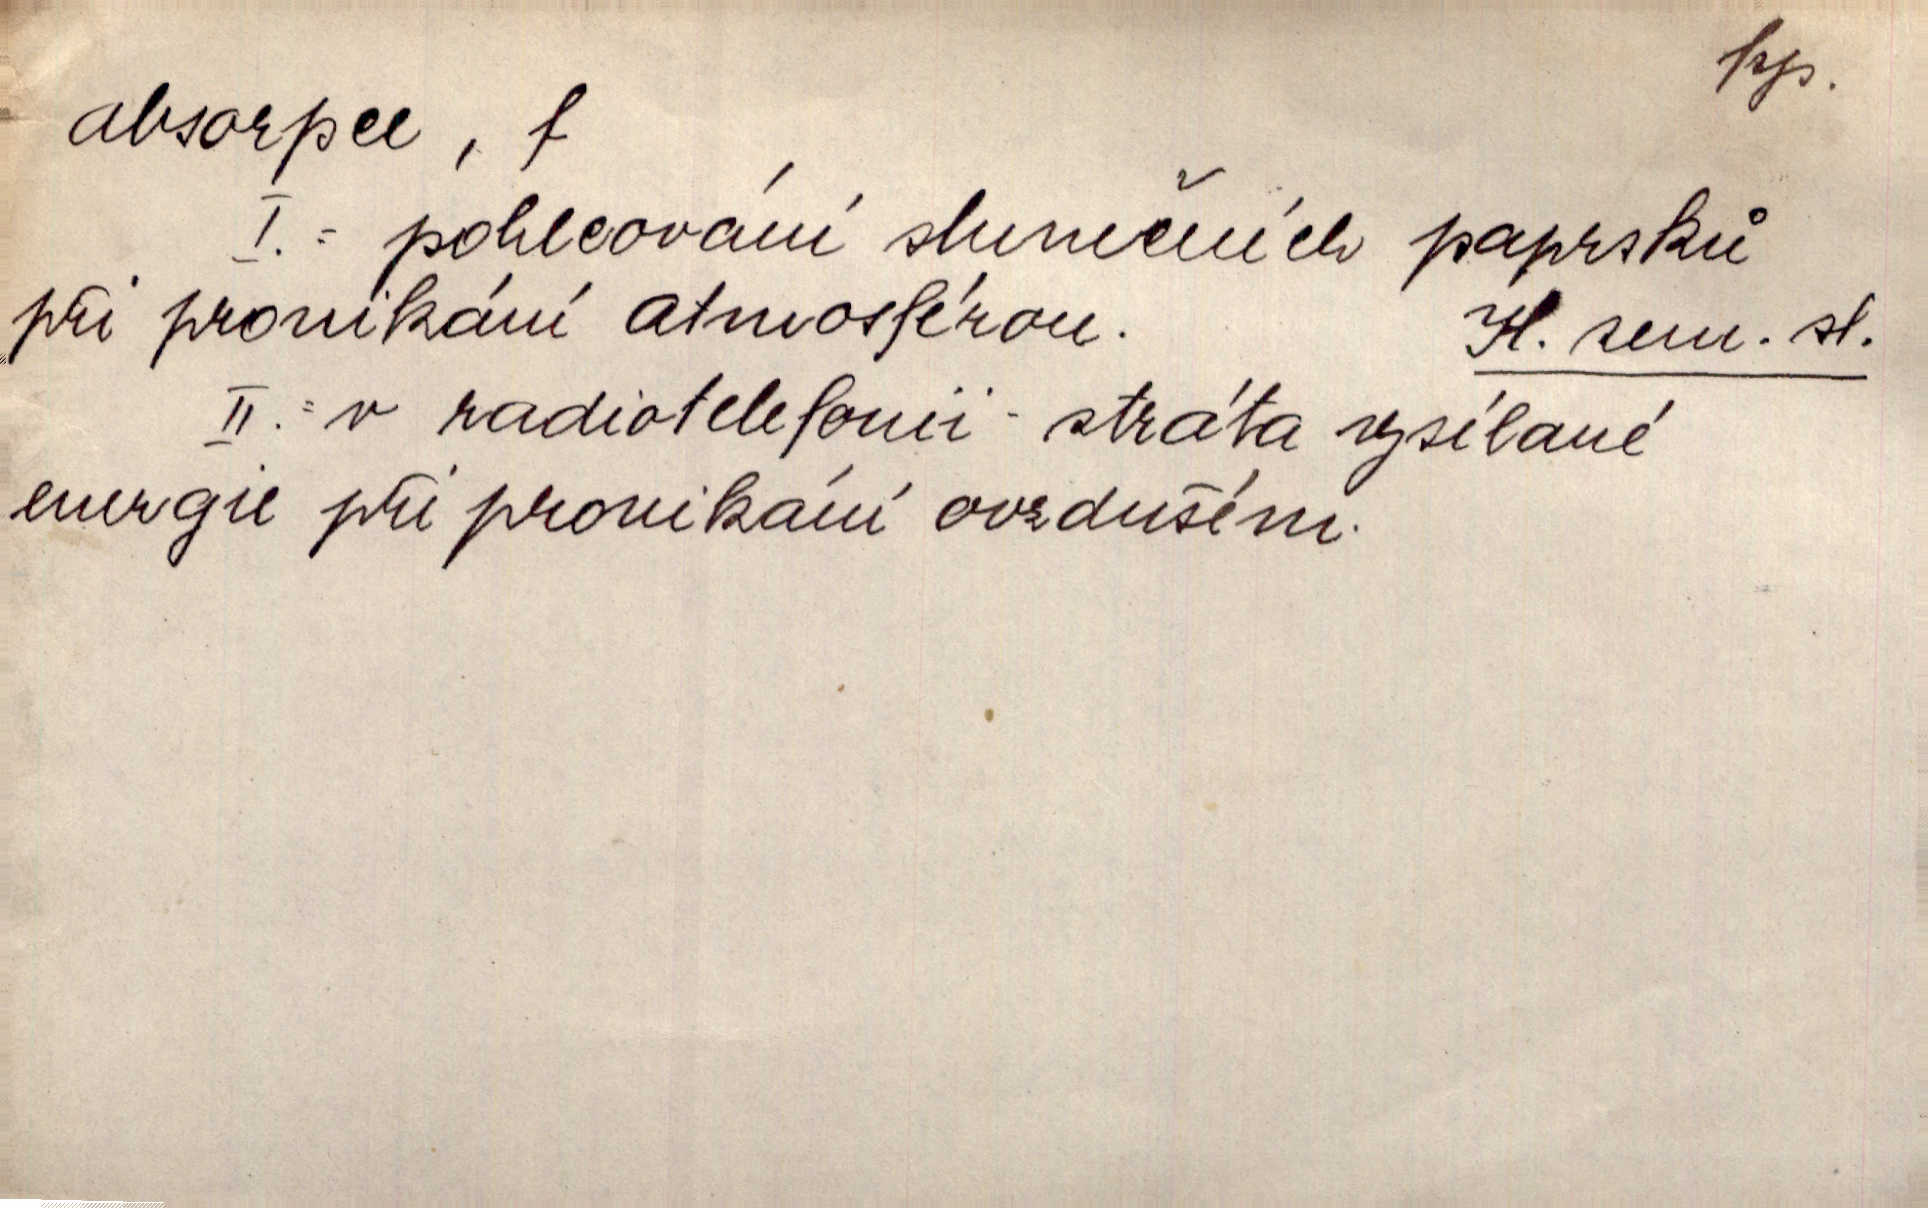 absorpce, f
I. = pohlcování slunečních paprsků
při pronikání atmosférou. Hl. zem. sl.
II. = v radiotelefonii - stráta vysílané
energie při pronikání ovzduším.